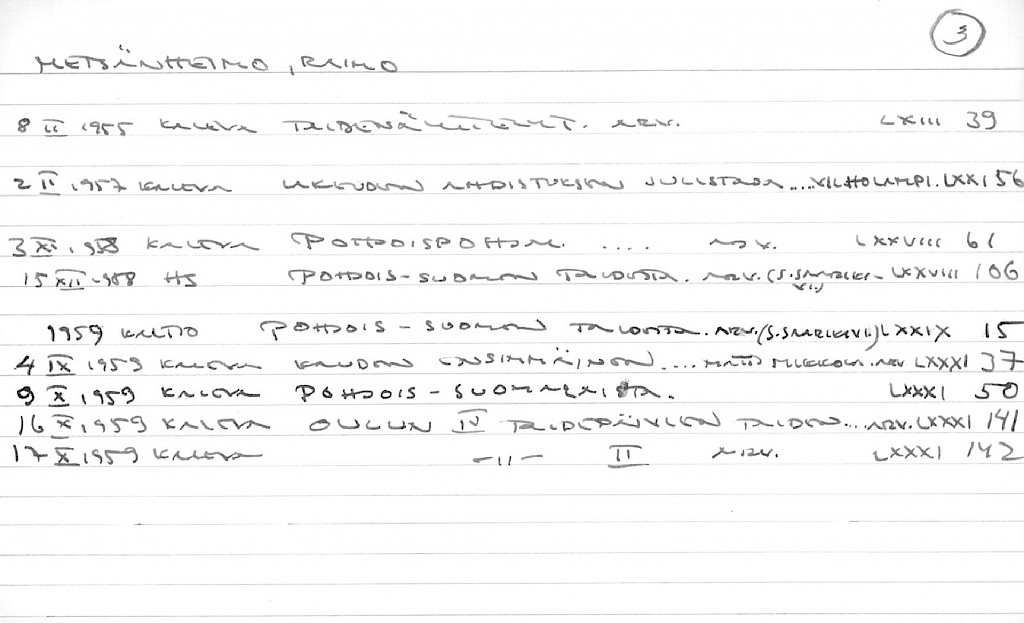 3
METSÄNHEIMO, RAIMO
8 II 1955 KALEVA TAIDENÄYTTELYT. ARV. LXIII 39
2 II 1957 KALEVA UKKUDEN AHDISTUKSEN JULISTAJA ... VILHO LAMPI. LXXI 56
3 XI 1958 KALEVA POHJOISPOHJM. .... ARV. LXXVIII 61
15 XII 1958 HS POHJOIS-SUOMEN TAIDETTA. ARV. (S. SAARIKI- LXXVIII 106
VI)
1959 KALTIO POHJOIS-SUOMEN TAIDETTA. ARV. (S. SAARIKIVI) LXXIX 15
4 IX 1959 KALEVA KAUDEN ENSIMMÄINEN .... MATTI MIKKOLA. ARV LXXXI 37
9 X 1959 KALEVA POHJOIS-SUOMALAISTA. LXXXI 50
16 X 1959 KALEVA OULUN IV TAIDEPÄIVIEN TAIDEN... ARV. LXXXI 141
17 X 1959 KALEVA -"- II ARV. LXXXI 142